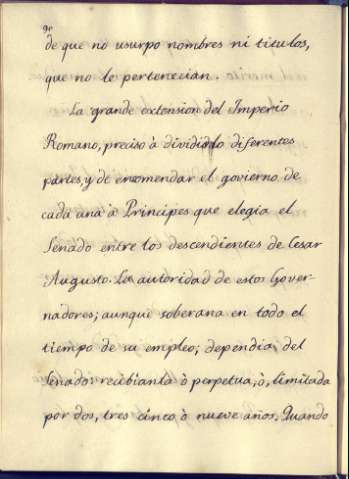 90
de que no usurpo nombres ni titulos,
que no le pertenecian.
La grande extension del Imperio
Romano, preciso à dividirlo diferentes
partes, y de encomendar el govierno de
cada una à Principes que elegia el
Senado entre los descendientes de Cesar
Augusto. La autoridad de estos Gover-
nadores; aunque soberana en todo el
tiempo de su empleo; dependia del
Senado: recibianla ò perpetua, ò, limitada
por dos, tres cinco ò nueve años. Quando